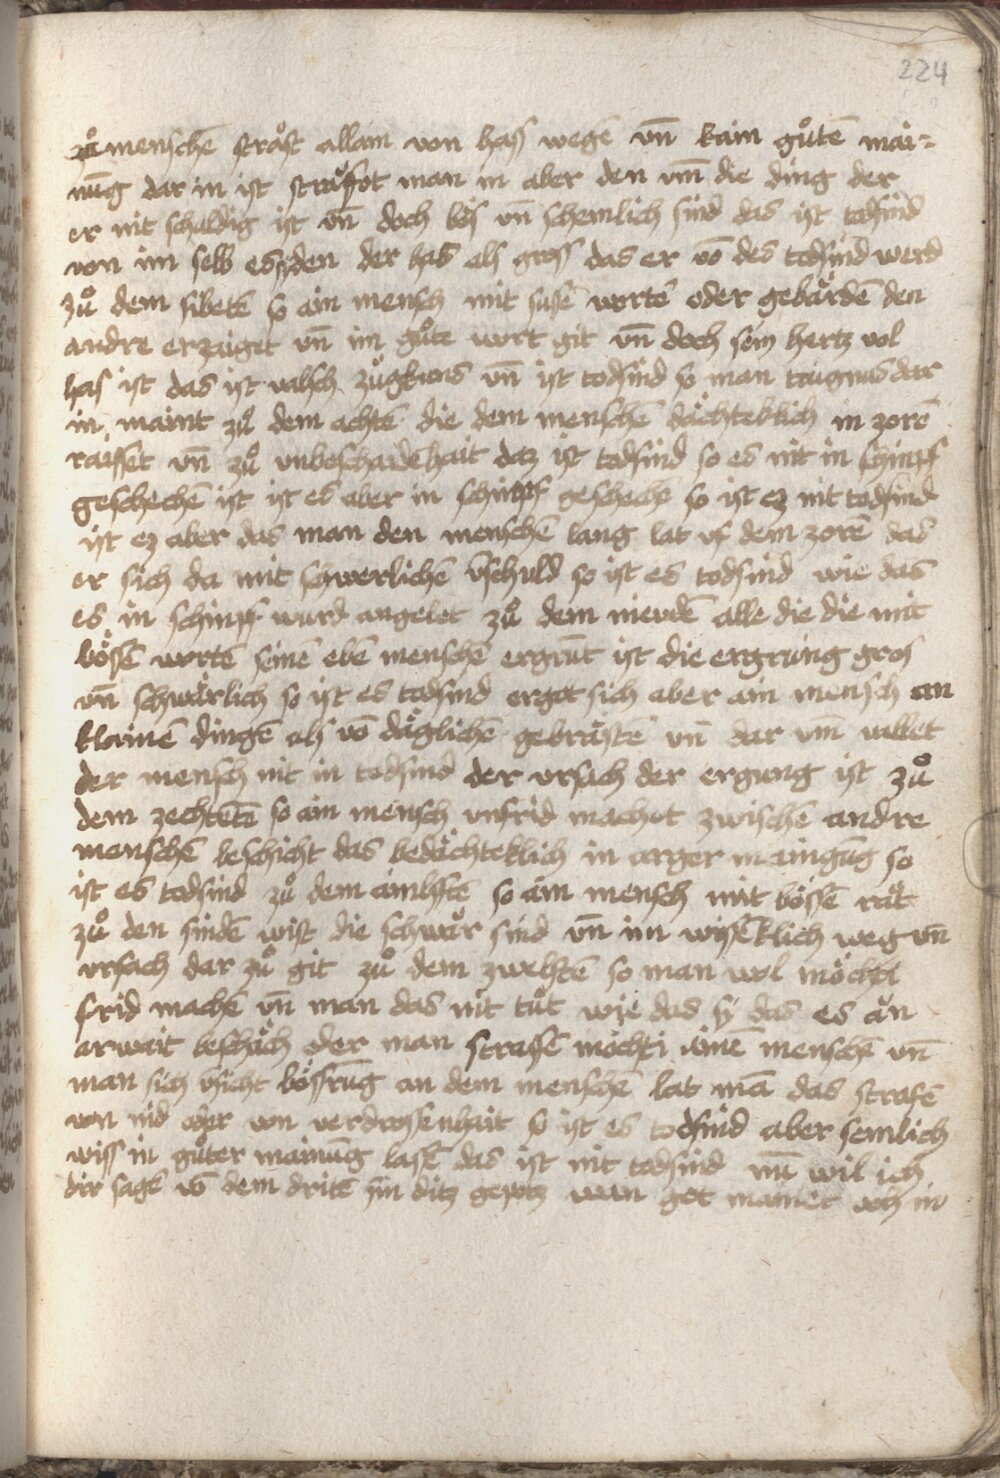 224
zů menschē straͦft allain von hass wegē vn̄ kain gůtē mai-
nūg dar in ist straͧfot man in aber den vm̄ die ding der
er nit schuldig ist vn̄ doch boͤs vn̄ schemlich sind das ist todsind
von im selb es den der has als gross das er vō des todsind werd
zů dem sibetē so ain mensch mit susē wortē oder gebaͤrdē den
andre erzaiget vn̄ im gůte wort git vn̄ doch sein hertz vol
has ist das ist valsch vn̄ ist todsind so man dar
in maint zů dem achtē die dem menschē daͤchteklich in zorē
raissēt vn̄ zů vnbeschaidēhait daz ist todsind so es nit in schimpf
geschechē ist ist es aber in schimpf geschechē so ist ez nit todsind
ist ez aber das man den menschē lang lat vf dem zorē das
er sich da mit schwerlichē v̄schuld so ist es todsind wie das
es in schimpf ward angelet zů dem niendē alle die die mit
boͤssē wortē seinē ebē menschē ergrūt ist die ergrung gros
vn̄ schwaͤrlich so ist es todsind ergot sich aber ain mensch an
klainē dingē als vō daͤglichē gebraͤstē vn̄ dar vm̄ vallet
der mensch nit in todsind der vrsach der ergung ist zů
dem zechtētē so ain mensch vnfrid machot zwischē andre
menschē beschicht das bedaͤchteklich in arger maingūg so
ist es todsind zů dem ainlftē so ain mensch mit boͤssē raͤt
zů den sindē wist die schwaͤr sind vn̄ im wisēklich weg vn̄
vrsach dar zů git zů dem zwelftē so man wol moͤchti
frid machē vn̄ man das nit tůt wie das sy das es aͧn
arwait beschaͤch oder man straffē moͤchti ainē menschē vn̄
man sich v̄sicht boͤssrūg an dem menschē lat mā das strafē
von nid oder von verdrossenhait so ist es todsind aber semlich
wiss in gůter mainūg lasē das ist nit todsind nū wil ich
dir sagē vō dem dritē sin ditz gepotz wan got mainet och in